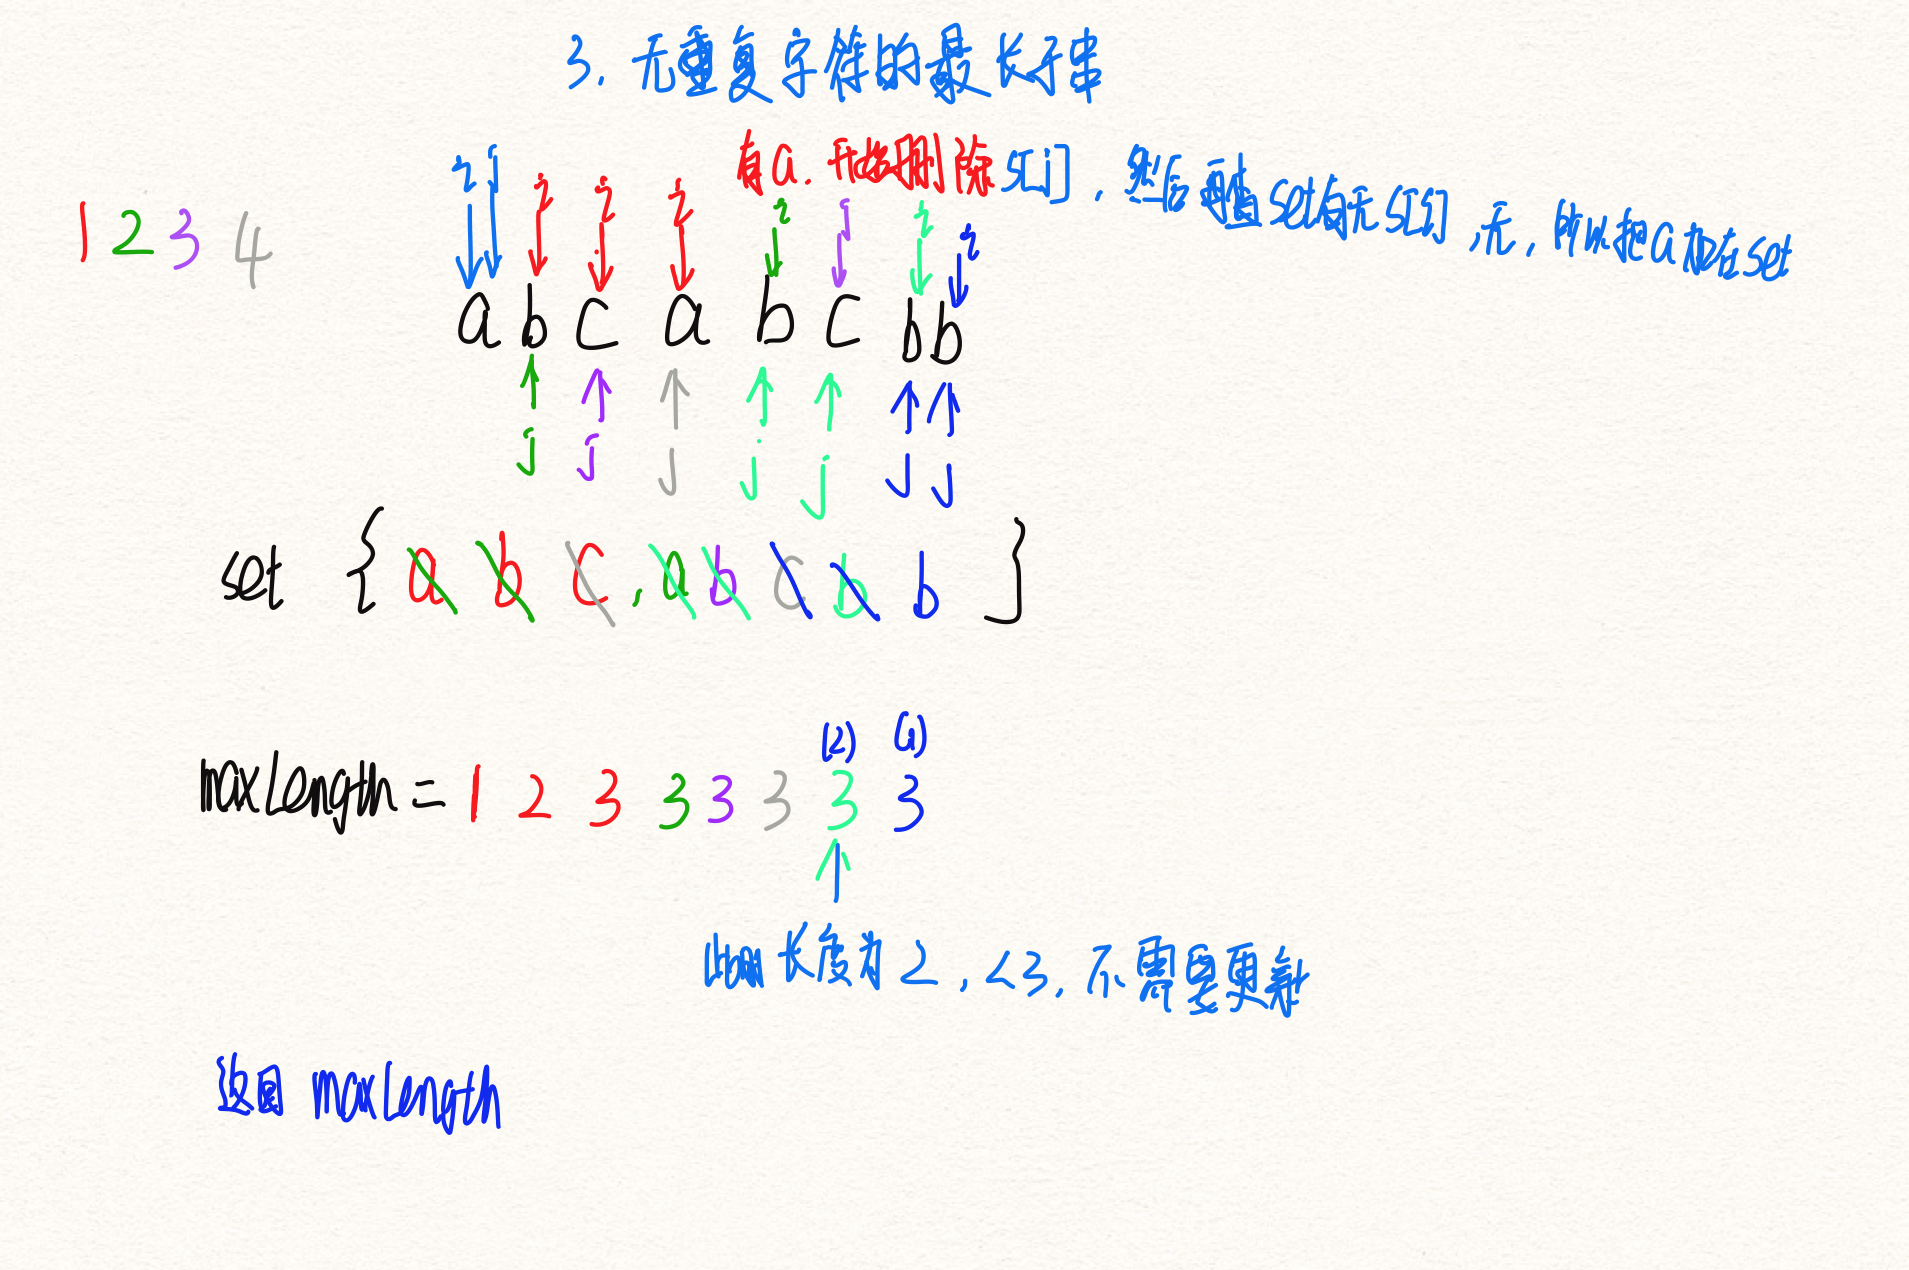 3. 无重复字符的最长子串
1 2 3 4
i j i i i 有a. 开始删除s[j], 然后再查set有无s[i], 无, 所以把a加在set
i j i i
a b c a b c b b
j j j j j j j
set { a b c , a b c b b }
(2) (1)
maxLength = 1 2 3 3 3 3 3 3
此时长度为2, <3, 不需要更新
返回 maxLength